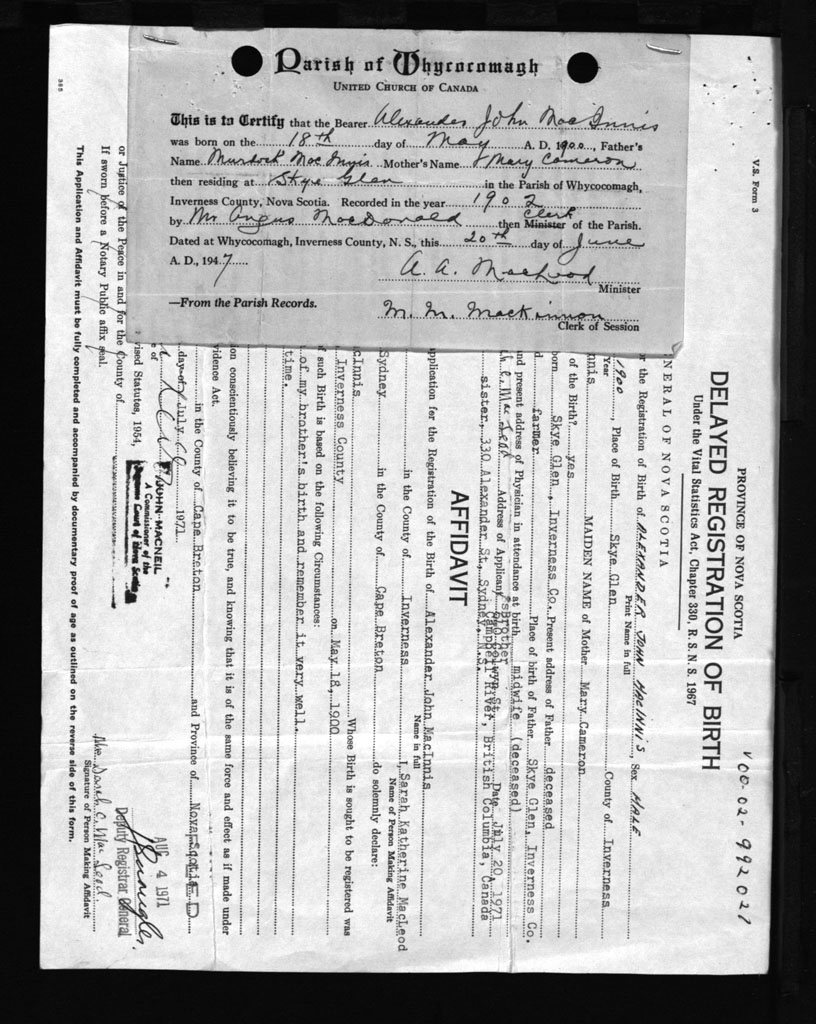 Parish of Whycocomagh
UNITED CHURCH OF CANADA
This is to Certify that the Bearer Alexander John MacInnis
was born on the 18th day of May A. D. 1900, Father's
Name Murdoch MacInnis Mother's Name Mary Cameron
then residing at Skye Glen in the Parish of Whycocomagh,
Inverness County, Nova Scotia. Recorded in the year 1902
by Mr Angus MacDonald then Minister Clerk of the Parish.
Dated at Whycocomagh, Inverness County, N. S., this 20th day of June
A. D., 1947
A. A. MacLeod
Minister
—From the Parish Records.
M. M. MacKinnon
Clerk of Session
V.S. Form 3
V00-02-992021
PROVINCE OF NOVA SCOTIA
DELAYED REGISTRATION OF BIRTH
Under the Vital Statistics Act, Chapter 330, R. S. N. S. 1967
NERAL OF NOVA SCOTIA
r the Registration of Birth of ALEXANDER JOHN MACINNIS, Sex MALE
Print Name in full
1900, Place of Birth Skye Glen County of Inverness
Year
nnis MAIDEN NAME of Mother Mary Cameron
of the Birth? yes
born Skye Glen, Inverness Co. Present address of Father deceased
farmer Place of birth of Father Skye Glen, Inverness Co.
and present address of Physician in attendance at birth midwife (deceased)
Address of Applicant Brother Date July 20, 1971
sister, 330 Alexander St. Sydney, Campbell River, British Columbia, Canada
AFFIDAVIT
pplication for the Registration of the Birth of Alexander John MacInnis
Name in full
I, Sarah Katherine MacLeod
Name of Person Making Affidavit
Sydney in the County of Inverness
in the County of Cape Breton do solemnly declare:
cInnis Whose Birth is sought to be registered was
Inverness County on May 18, 1900
f such Birth is based on the following Circumstances:
of my brother's birth and remember it very well.
time.
on conscientiously believing it to be true, and knowing that it is of the same force and effect as if made under
vidence Act.
in the County of Cape Breton and Province of Nova Scotia
day of July 1971
JOHN MACNEIL
A Commissioner of the
Supreme Court of Nova Scotia
AUG 4 1971
Deputy Registrar General
vised Statutes, 1954,
Mrs. Sarah C. MacLeod
Signature of Person Making Affidavit
or Justice of the Peace in and for the County of
If sworn before a Notary Public affix seal.
This Application and Affidavit must be fully completed and accompanied by documentary proof of age as outlined on the reverse side of this form.